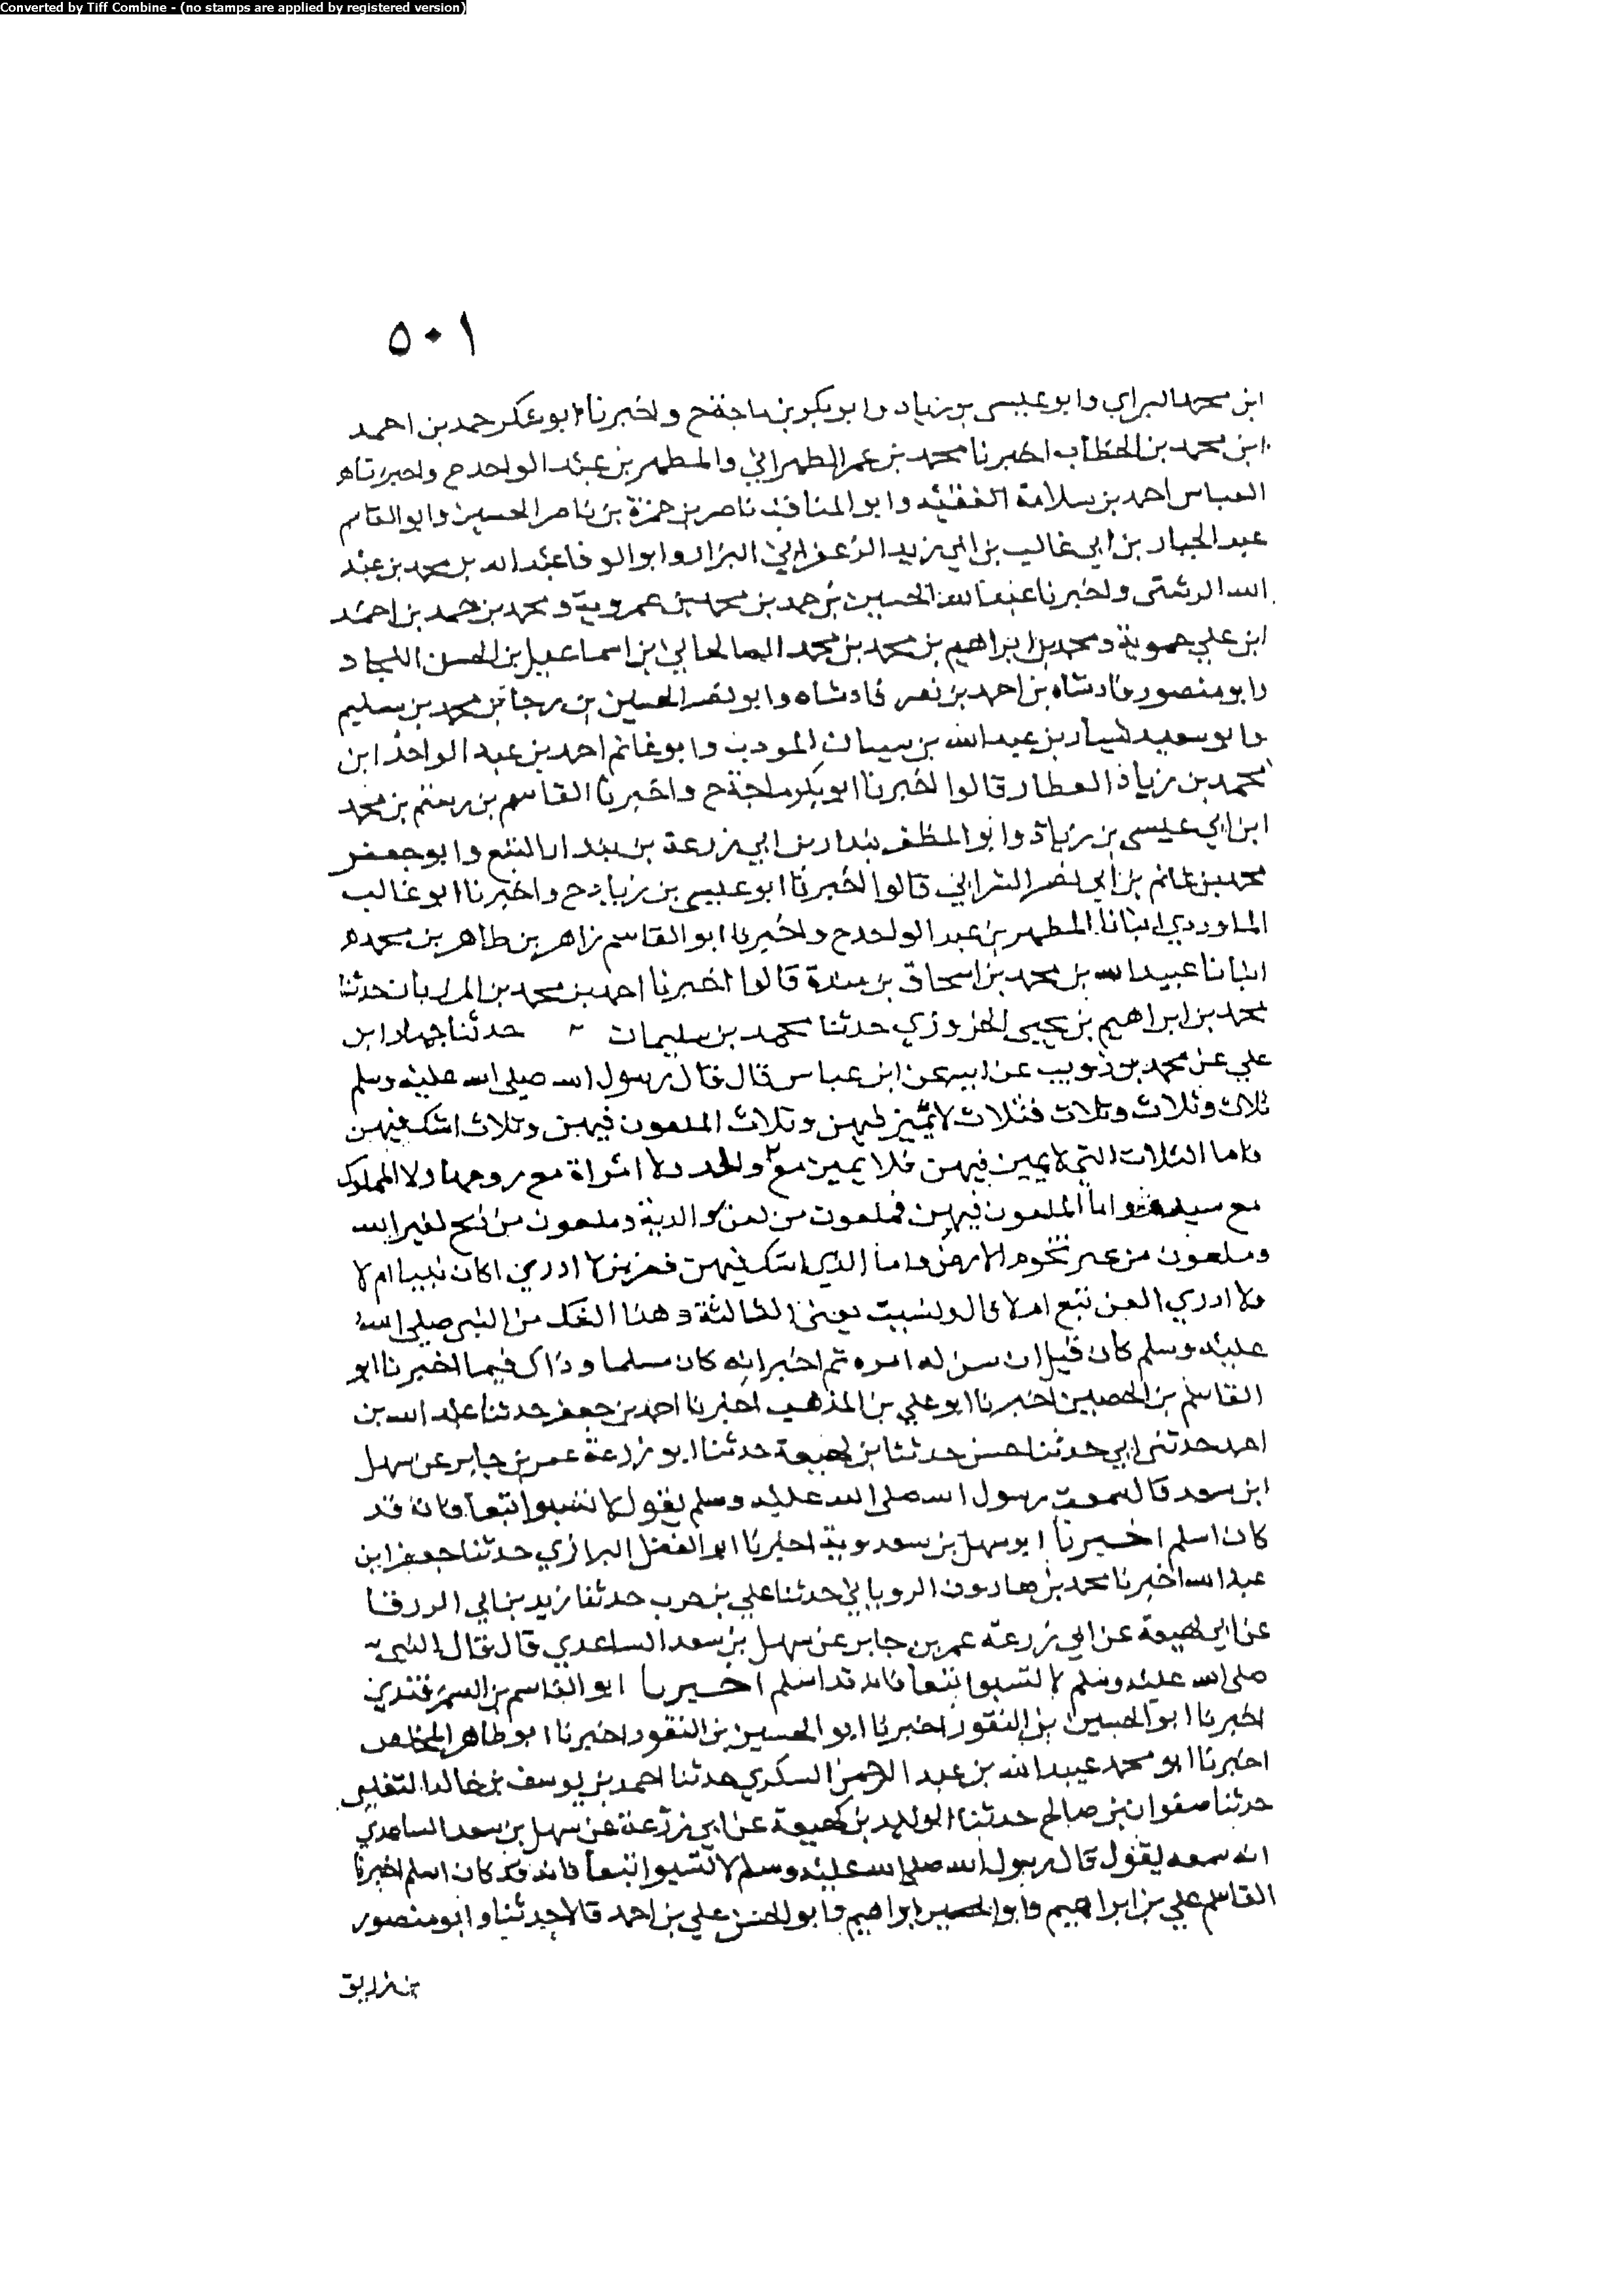 Converted by Tiff Combine - (no stamps are applied by registered version)
٥٠١
ابن محمد البراي وابو عيسى بن زياد وابو بكر بن ماجة ح واخبرنا ابو عكر حمد بن احمد
ابن محمد بن الخطاب اخبرنا محمد بن عمر الطهراني والمطهر بن عبد الواحد ح واخبرنا
العباس احمد بن سلامة الفقيه وابو المناقب ناصر بن حمزة بن ناصر الحسين وابو القاسم
عبد الجبار بن ابي غالب بن ابي زيد الزعفراني البزار وابو الوفا عبد الله بن محمد بن عبد
الله الرشتى واخبرنا الحسين بن حمد بن محمد بن عمروية ومحمد بن حمد بن احمد
ابن علي حموية ومحمد بن ابراهيم بن محمد بن محمد الصالحاني بن اسماعيل بن الحسن
وابو منصور فادشاه بن احمد بن نصر فادشاه وابو نصر الحسين بن رجا بن محمد بن سليم
وابو سعيد شيبان بن عبد الله بن شيبان المودب وابو غانم احمد بن عبد الواحد ابن
محمد بن زياد العطار قالوا اخبرنا ابو بكر ماجة ح واخبرنا القاسم بن رستم بن محمد
ابن ابي عيسى بن زياد وابو المظفر بندار بن ابي زرعة بن بندار البيع وابو جعفر
محمد بن غانم بن ابي نصر الشرابي قالوا اخبرنا ابو عيسى بن زياد ح واخبرنا ابو غالب
الماوردي انبانا المطهر بن عبد الواحد ح واخبرنا ابو القاسم زاهر بن طاهر بن محمد
انبانا عبيد الله بن محمد بن اسحاق بن مندة قالوا اخبرنا احمد بن محمد بن المرزبان حدثنا
محمد بن ابراهيم بن يحيى الحزوري حدثنا محمد بن سليمان حدثنا حماد ابن
علي عن محمد بن ذويب عن ابيه عن ابن عباس قال قال رسول الله صلى الله عليه وسلم
ثلاث وثلاث وثلاث فثلاث لا يمين فيهن وثلاث الملعون فيهن وثلاث اشك فيهن
فاما الثلاث التي لا يمين فيهن فلا يمين مع والد ولا امراة مع زوجها ولا المملوك
مع سيده واما الملعون فيهن فملعون من لعن والدية وملعون من ذبح لغير الله
وملعون من غير تخوم الارض واما الذي اشك فيهن فعزير لا ادري اكان نبيا ام لا
ولا ادري العن تبع ام لا قال ونسيت يعني الثالثة وهذا الشك من النبي صلى الله
عليه وسلم كان قبل ان يبين له امره ثم اخبر انه كان مسلما وذاك فيما اخبرنا ابو
القاسم بن الحصين اخبرنا ابو علي بن المذهب اخبرنا احمد بن جعفر حدثنا عبد الله بن
احمد حدثنى ابي حدثنا حسن حدثنا بن لهيعة حدثنا ابو زرعة عمر بن جابر عن سهل
ابن سعد قال سمعت رسول الله صلى الله عليه وسلم يقول لا تسبوا تبعا فانه قد
كان اسلم اخبرنا ابو سهل بن سعدوية اخبرنا ابو الفضل الرازي حدثنا جعفر ابن
عبد الله اخبرنا محمد بن هارون الروياني حدثنا علي بن حرب حدثنا زيد بن ابي الورقا
عن ابي لهيعة عن ابي زرعة عمر بن جابر عن سهل بن سعد الساعدي قال قال النبي
صلى الله عليه وسلم لا تسبوا تبعا فانه قد اسلم اخبرنا ابو القاسم بن السمرقندي
اخبرنا ابو الحسين بن النقور اخبرنا ابو الحسين بن النقور اخبرنا ابو طاهر المخلص
اخبرنا ابو محمد عبيد الله بن عبد الرحمن السكري حدثنا احمد بن يوسف بن خالد التغلبي
حدثنا صفوان بن صالح حدثنا الوليد بن لهيعة عن ابي زرعة عن سهل بن سعد الساعدي
انه سمعه يقول قال رسول الله صلى الله عليه وسلم لا تسبوا تبعا فانه قد كان اسلم اخبرنا
القاسم علي بن ابراهيم وابو الحسين ابراهيم وابو الحسن علي بن احمد قالا حدثنا وابو منصور
بن زريق